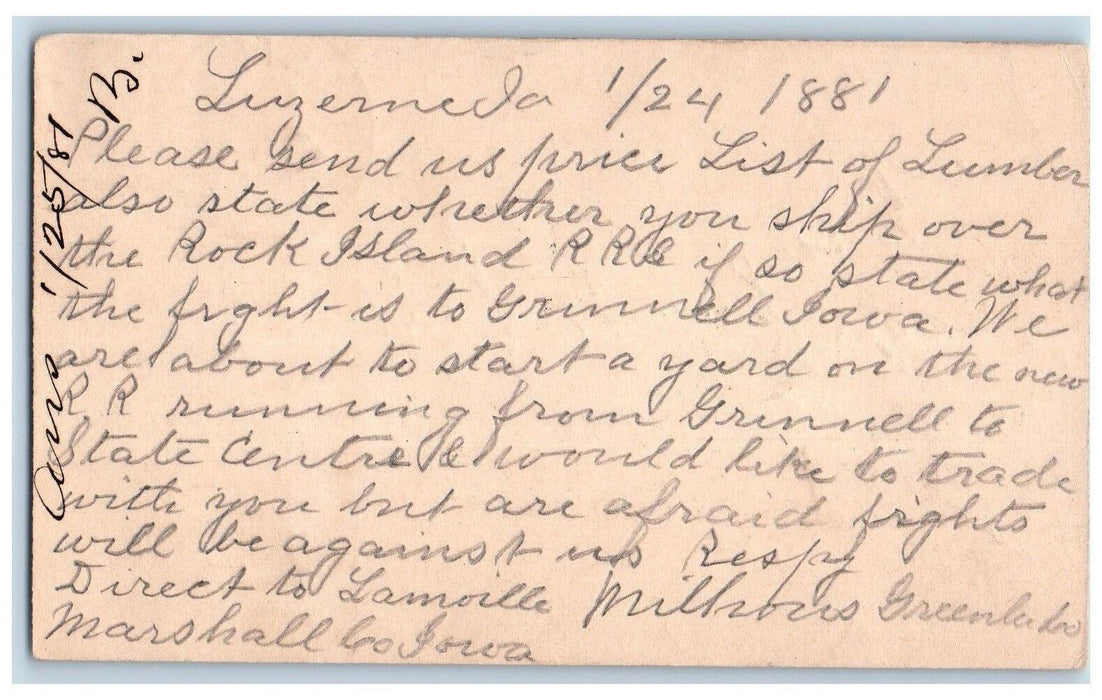 Luzerne Ia 1/24 1881
Please send us price List of Lumber
also state whether you ship over
the Rock Island R R & if so state what
the frght is to Grinnell Iowa. We
are about to start a yard on the new
R R running from Grinnell to
State Centre & would like to trade
with you but are afraid frghts
will be against us Respy
Direct to Lamoille Milhous
Marshall Co Iowa
Ans 1/25/81 B.